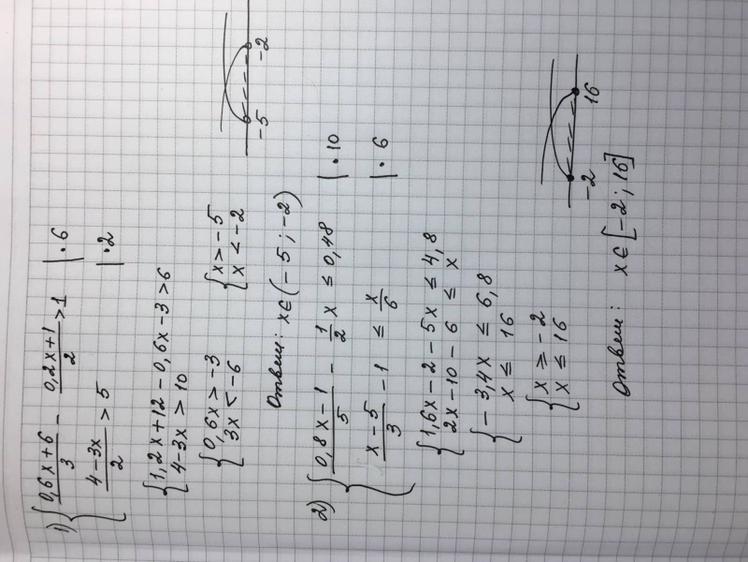 1) { (0,6x+6)/3 − (0,2x+1)/2 > 1 | · 6
(4−3x)/2 > 5 | · 2
{ 1,2x+12−0,6x−3 > 6
4−3x > 10
{ 0,6x > −3 { x > −5
3x < −6 x < −2
−5 −2
Ответ: x∈(−5; −2)
2) { (0,8x−1)/5 − 1/2 x ≤ 0,48 | · 10
(x−5)/3 − 1 ≤ x/6 | · 6
{ 1,6x−2−5x ≤ 4,8
2x−10−6 ≤ x
{ −3,4x ≤ 6,8
x ≤ 16
{ x ≥ −2
x ≤ 16
−2 16
Ответ: x∈[−2; 16]